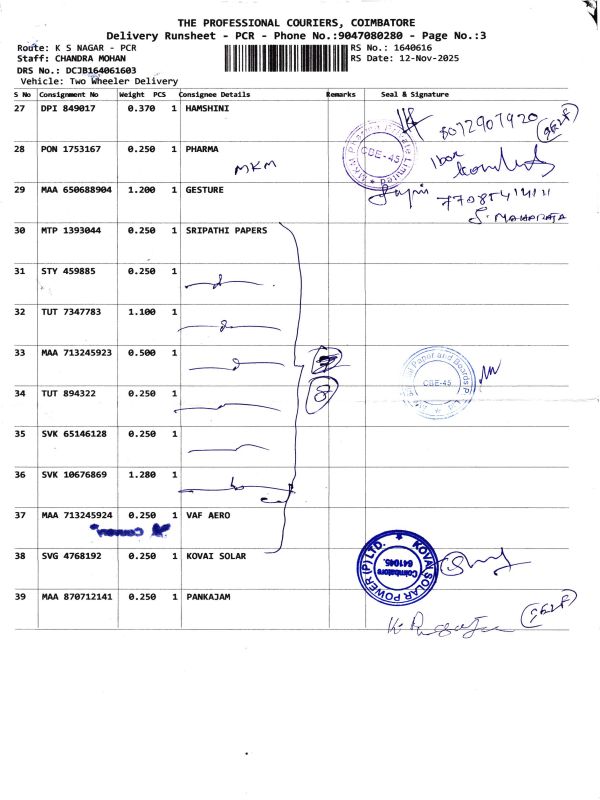 THE PROFESSIONAL COURIERS, COIMBATORE
Delivery Runsheet - PCR - Phone No.:9047080280 - Page No.:3
Route: K S NAGAR - PCR RS No.: 1640616
Staff: CHANDRA MOHAN RS Date: 12-Nov-2025
DRS No.: DCJB164061603
Vehicle: Two Wheeler Delivery
S No Consignment No Weight PCS Consignee Details Remarks Seal & Signature
27 DPI 849017 0.370 1 HAMSHINI
8072907920
28 PON 1753167 0.250 1 PHARMA
MKM
CBE-45
29 MAA 650688904 1.200 1 GESTURE
S. MAHARAJA
30 MTP 1393044 0.250 1 SRIPATHI PAPERS
31 STY 459885 0.250 1
32 TUT 7347783 1.100 1
33 MAA 713245923 0.500 1
CBE-45
34 TUT 894322 0.250 1
8
35 SVK 65146128 0.250 1
36 SVK 10676869 1.280 1
37 MAA 713245924 0.250 1 VAF AERO
38 SVG 4768192 0.250 1 KOVAI SOLAR
KOVAI SOLAR POWER (P) LTD.
Coimbatore
641045.
39 MAA 870712141 0.250 1 PANKAJAM